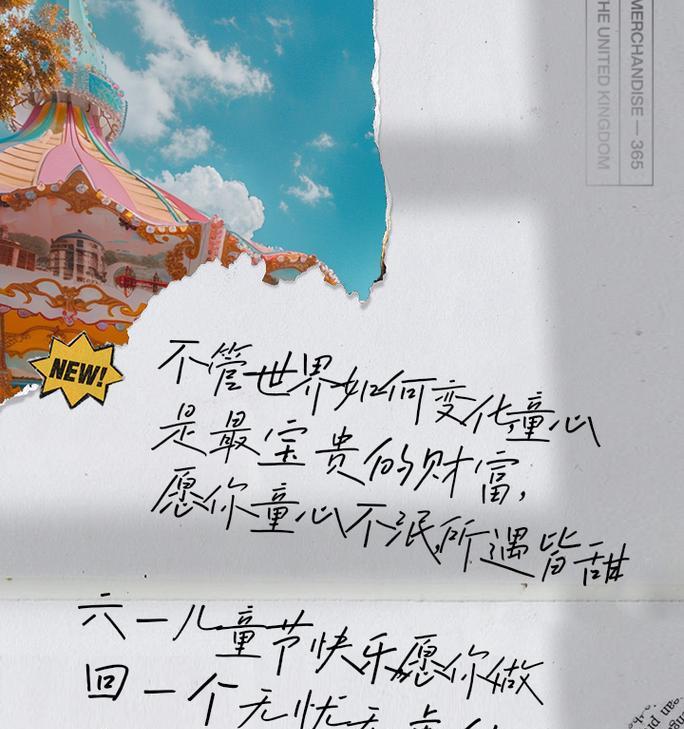 MERCHANDISE — 365
THE UNITED KINGDOM
NEW!
不管世界如何变化,童心
是最宝贵的财富,
愿你童心不泯,所遇皆甜
六一儿童节快乐,愿你做
回一个无忧无虑